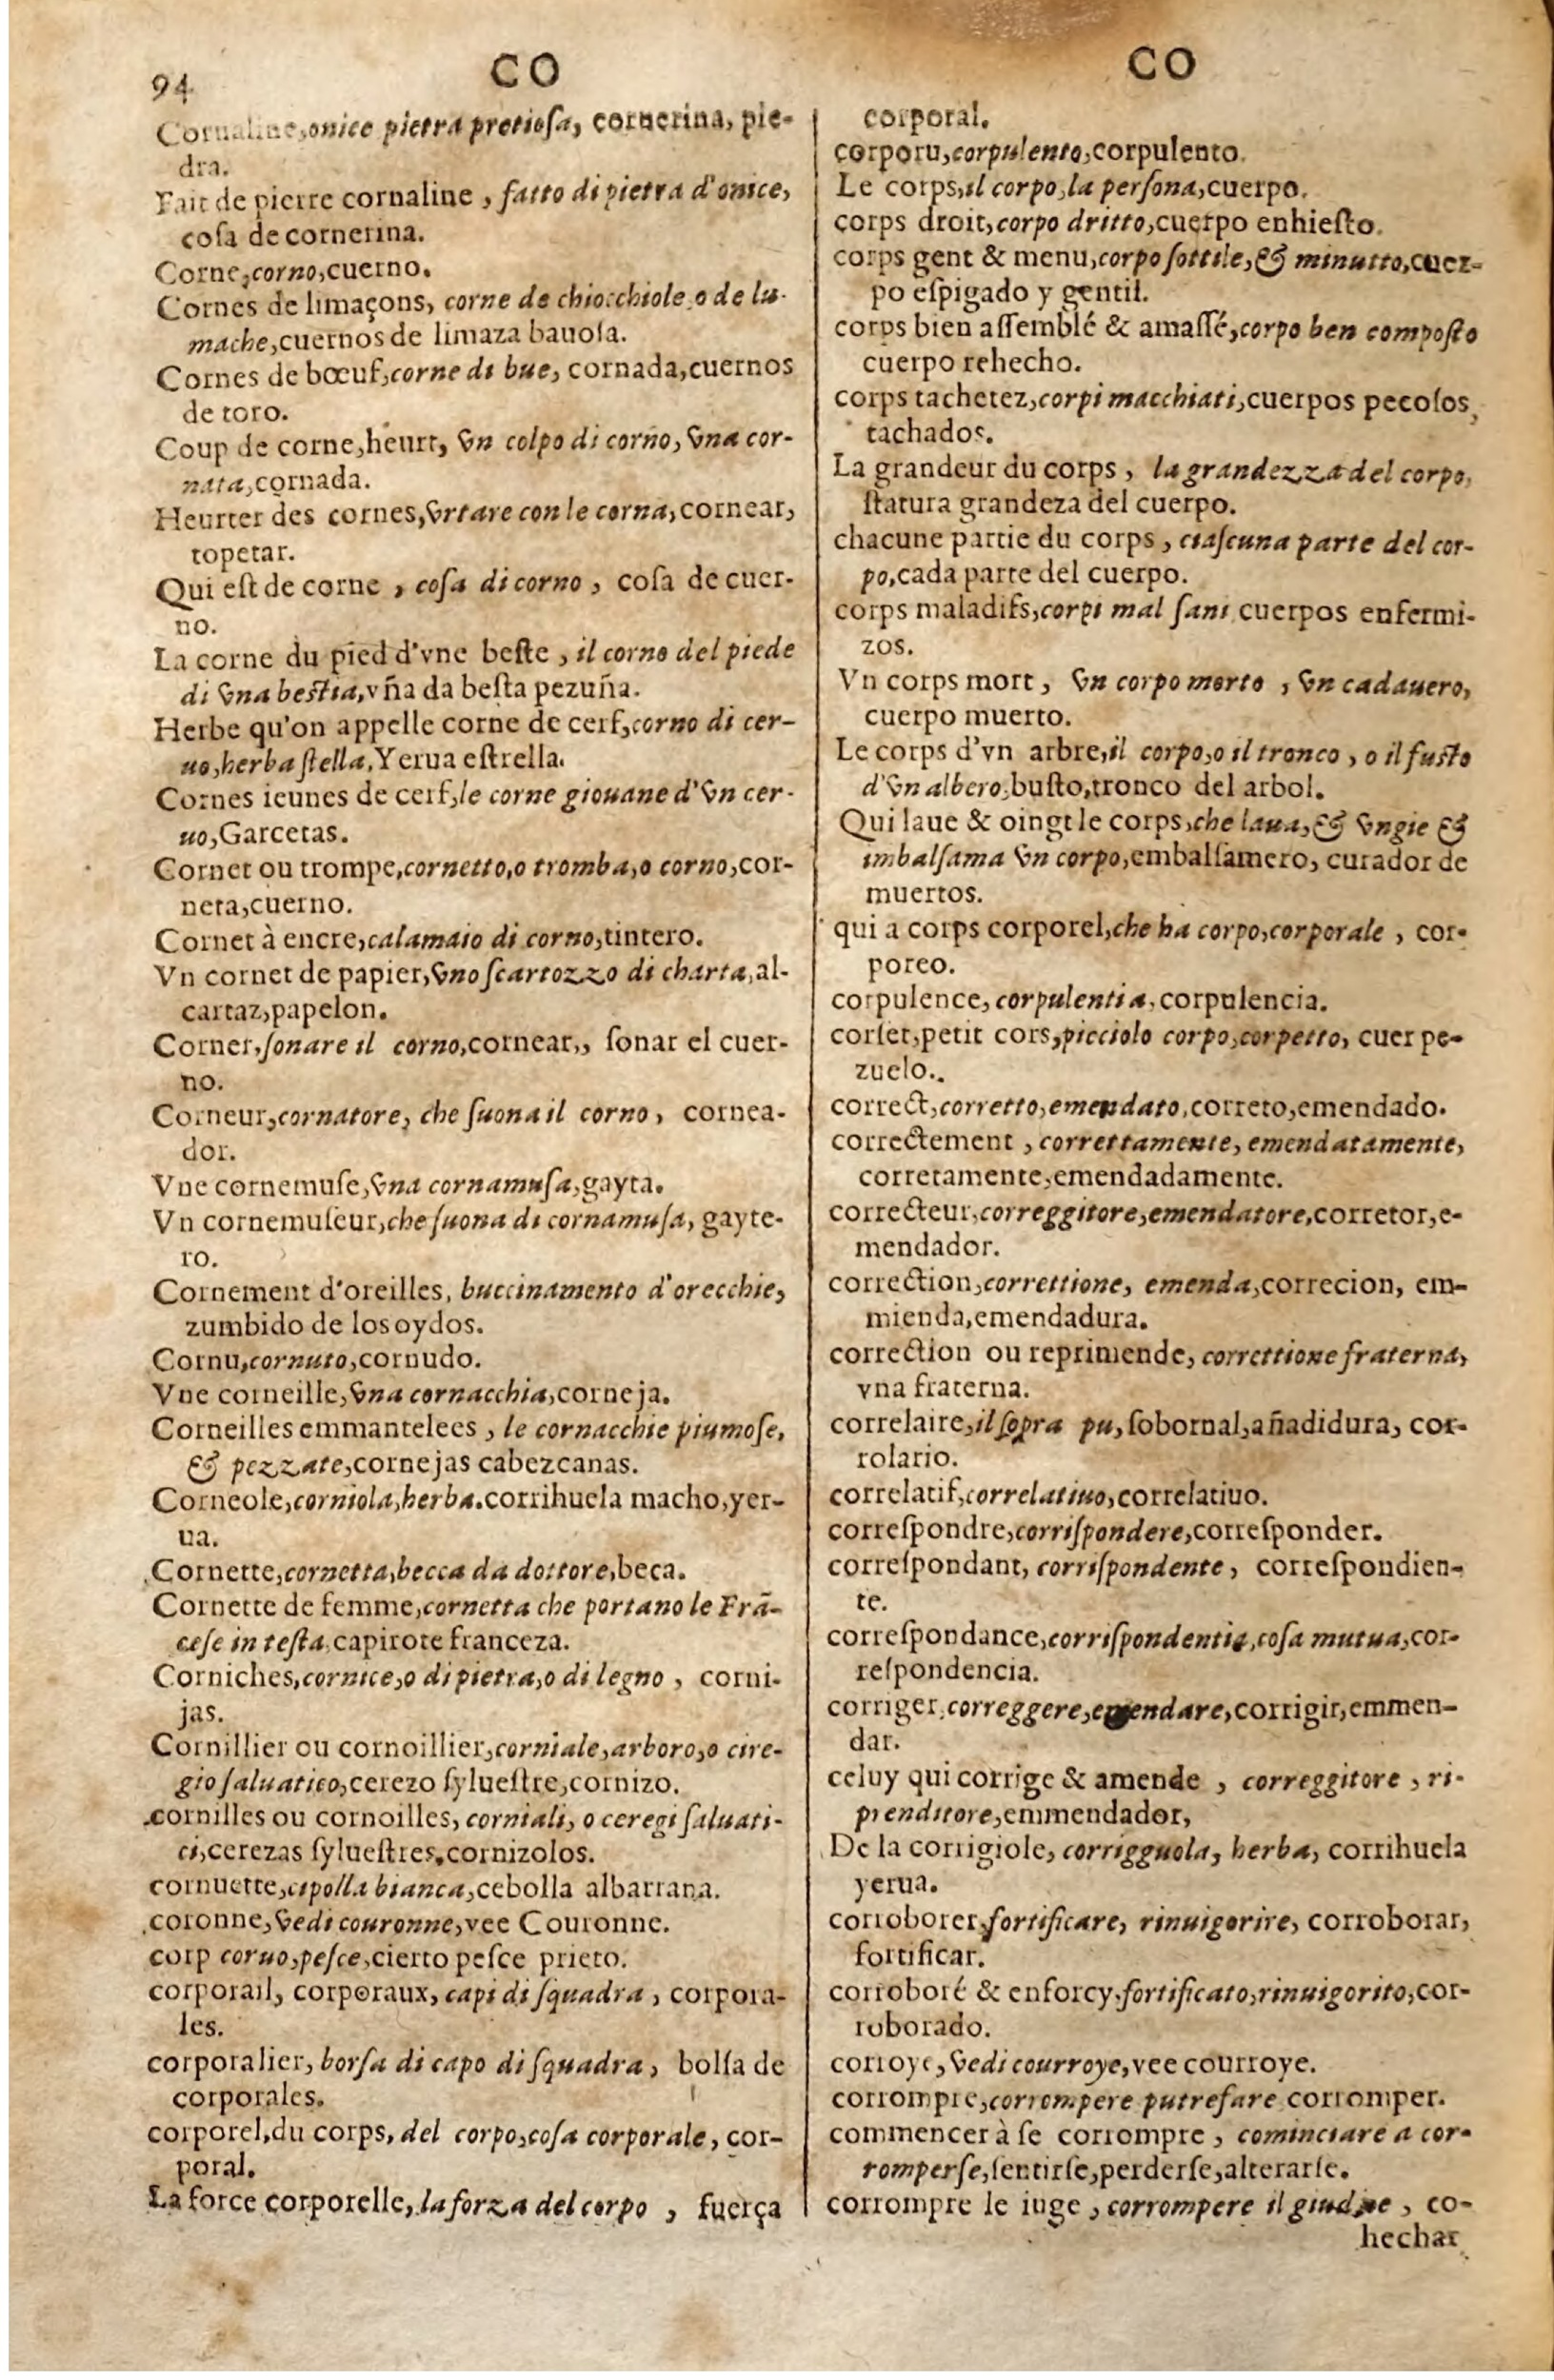 94
CO
Cornaline,onice pietra pretioſa, cornerina, pie-
dra.
Fait de pierre cornaline , fatto di pietra d'onice,
coſa de cornerina.
Corne,corno,cuerno.
Cornes de limaçons, corne de chiocchiole,o de lu-
mache,cuernos de limaza bauoſa.
Cornes de bœuf,corne di bue, cornada,cuernos
de toro.
Coup de corne,heurt, vn colpo di corno, vna cor-
nata,cornada.
Heurter des cornes,vrtare con le corna,cornear,
topetar.
Qui eſt de corne , coſa di corno , coſa de cuer-
no.
La corne du pied d'vne beſte , il corno del piede
di vna beſtia,vña da beſta pezuña.
Herbe qu'on appelle corne de cerf,corno di cer-
uo,herba ſtella.Yerua eſtrella.
Cornes ieunes de cerf,le corne giouane d'vn cer-
uo,Garcetas.
Cornet ou trompe,cornetto,o tromba,o corno,cor-
neta,cuerno.
Cornet à encre,calamaio di corno,tintero.
Vn cornet de papier,vno ſcartozzo di charta,al-
cartaz,papelon.
Corner,ſonare il corno,cornear,, ſonar el cuer-
no.
Corneur,cornatore, che ſuona il corno, cornea-
dor.
Vne cornemuſe,vna cornamuſa,gayta.
Vn cornemuſeur,che ſuona di cornamuſa, gayte-
ro.
Cornement d'oreilles, buccinamento d'orecchie,
zumbido de los oydos.
Cornu,cornuto,cornudo.
Vne corneille,vna cornacchia,corneja.
Corneilles emmantelees , le cornacchie piumoſe,
& pezzate,cornejas cabezcanas.
Corneole,corniola,herba.corrihuela macho,yer-
ua.
Cornette,cornetta,becca da dottore,beca.
Cornette de femme,cornetta che portano le Frā-
ceſe in teſta,capirote franceza.
Corniches,cornice,o di pietra,o di legno , corni-
jas.
Cornillier ou cornoillier,corniale,arboro,o cire-
gio ſaluatico,cerezo ſylueſtre,cornizo.
cornilles ou cornoilles, corniali, o ceregi ſaluati-
ci,cerezas ſylueſtres,cornizolos.
cornuette,cipolla bianca,cebolla albarrana.
coronne,vedi couronne,vee Couronne.
corp coruo,peſce,cierto peſce prieto.
corporail, corporaux, capi di ſquadra , corpora-
les.
corporalier, borſa di capo di ſquadra, bolſa de
corporales.
corporel,du corps, del corpo,coſa corporale, cor-
poral.
La force corporelle, la forza del corpo , fuerça
CO
corporal.
corporu,corpulento,corpulento.
Le corps,il corpo,la perſona,cuerpo.
corps droit,corpo dritto,cuerpo enhieſto.
corps gent & menu,corpo ſottile,& minutto,cuer-
po eſpigado y gentil.
corps bien aſſemblé & amaſſé,corpo ben compoſto
cuerpo rehecho.
corps tachetez,corpi macchiati,cuerpos pecoſos,
tachados.
La grandeur du corps , la grandezza del corpo,
ſtatura grandeza del cuerpo.
chacune partie du corps , ciaſcuna parte del cor-
po,cada parte del cuerpo.
corps maladifs,corpi mal ſani cuerpos enfermi-
zos.
Vn corps mort, vn corpo morto , vn cadauero,
cuerpo muerto.
Le corps d'vn arbre,il corpo,o il tronco , o il fuſto
d'vn albero,buſto,tronco del arbol.
Qui laue & oingt le corps,che laua,& vngie &
imbalſama vn corpo,embalſamero, curador de
muertos.
qui a corps corporel,che ha corpo,corporale , cor-
poreo.
corpulence, corpulentia,corpulencia.
corſet,petit cors,picciolo corpo,corpetto, cuerpe-
zuelo..
correct,corretto,emendato,correto,emendado.
correctement , correttamente, emendatamente,
corretamente,emendadamente.
correcteur,correggitore,emendatore,corretor,e-
mendador.
correction,correttione, emenda,correcion, em-
mienda,emendadura.
correction ou reprimende, correttione fraterna,
vna fraterna.
correlaire,il ſopra pu, ſobornal,añadidura, cor-
rolario.
correlatif,correlatiuo,correlatiuo.
correſpondre,corriſpondere,correſponder.
correſpondant, corriſpondente , correſpondien-
te.
correſpondance,corriſpondentia,coſa mutua,cor-
reſpondencia.
corriger,correggere,emendare,corrigir,emmen-
dar.
celuy qui corrige & amende , correggitore , ri-
prenditore,emmendador,
De la corrigiole, corrigguola, herba, corrihuela
yerua.
corroborer,fortificare, rinuigorire, corroborar,
fortificar.
corroboré & enforcy,fortificato,rinuigorito,cor-
roborado.
corroye, vedi courroye,vee courroye.
corrompre,corrompere putrefare corromper.
commencer à ſe corrompre , cominciare a cor-
romperſe,ſentirſe,perderſe,alterarſe.
corrompre le iuge , corrompere il giudice , co-
hechar